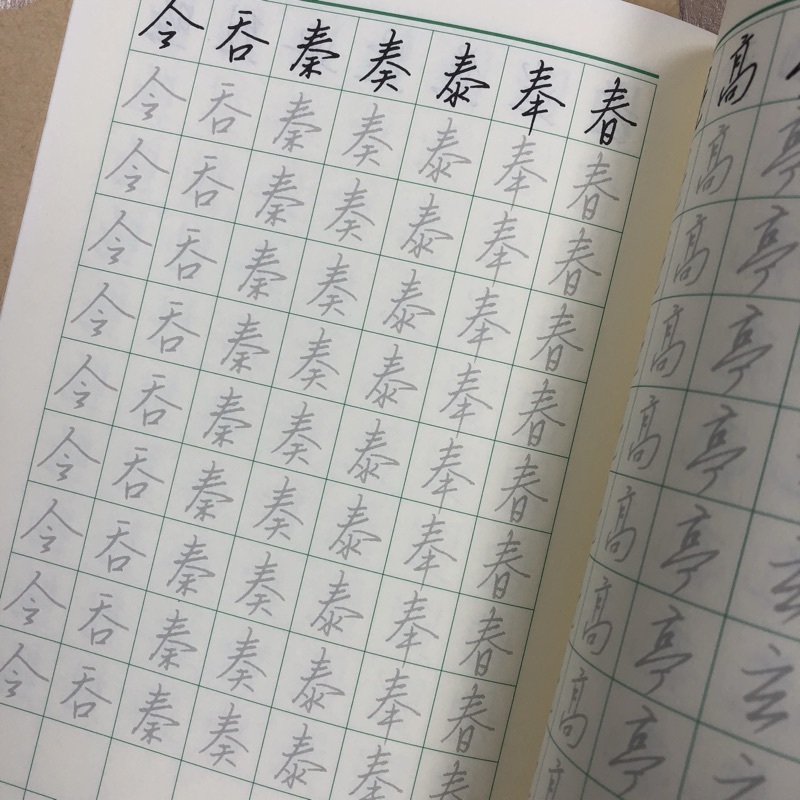 今吞秦奏泰奉春
今吞秦奏泰奉春
今吞秦奏泰奉春
今吞秦奏泰奉春
今吞秦奏泰奉春
今吞秦奏泰奉春
今吞秦奏泰奉春
今吞秦奏泰奉春
今吞秦奏泰奉春
今吞秦奏泰奉春
高
高亭
高亭
高亭
高亭
高亭玄
高亭玄
高亭